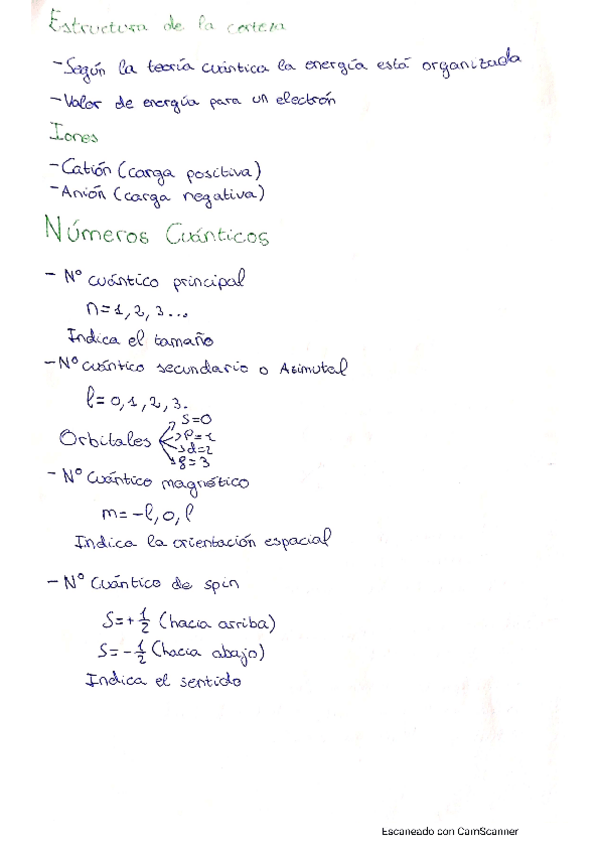 Estructura de la corteza
-Según la teoría cuántica la energía está organizada
-Valor de energía para un electrón
Iones
-Catión (carga positiva)
-Anión (carga negativa)
Números Cuánticos
- Nº cuántico principal
n=1, 2, 3...
Indica el tamaño
-Nº cuántico secundario o Azimutal
l=0,1,2,3.
s=0
Orbitales p=1
d=2
f=3
- Nº Cuántico magnético
m=-l, 0, l
Indica la orientación espacial
- Nº Cuántico de spin
S=+1/2 (hacia arriba)
S=-1/2 (hacia abajo)
Indica el sentido
Escaneado con CamScanner